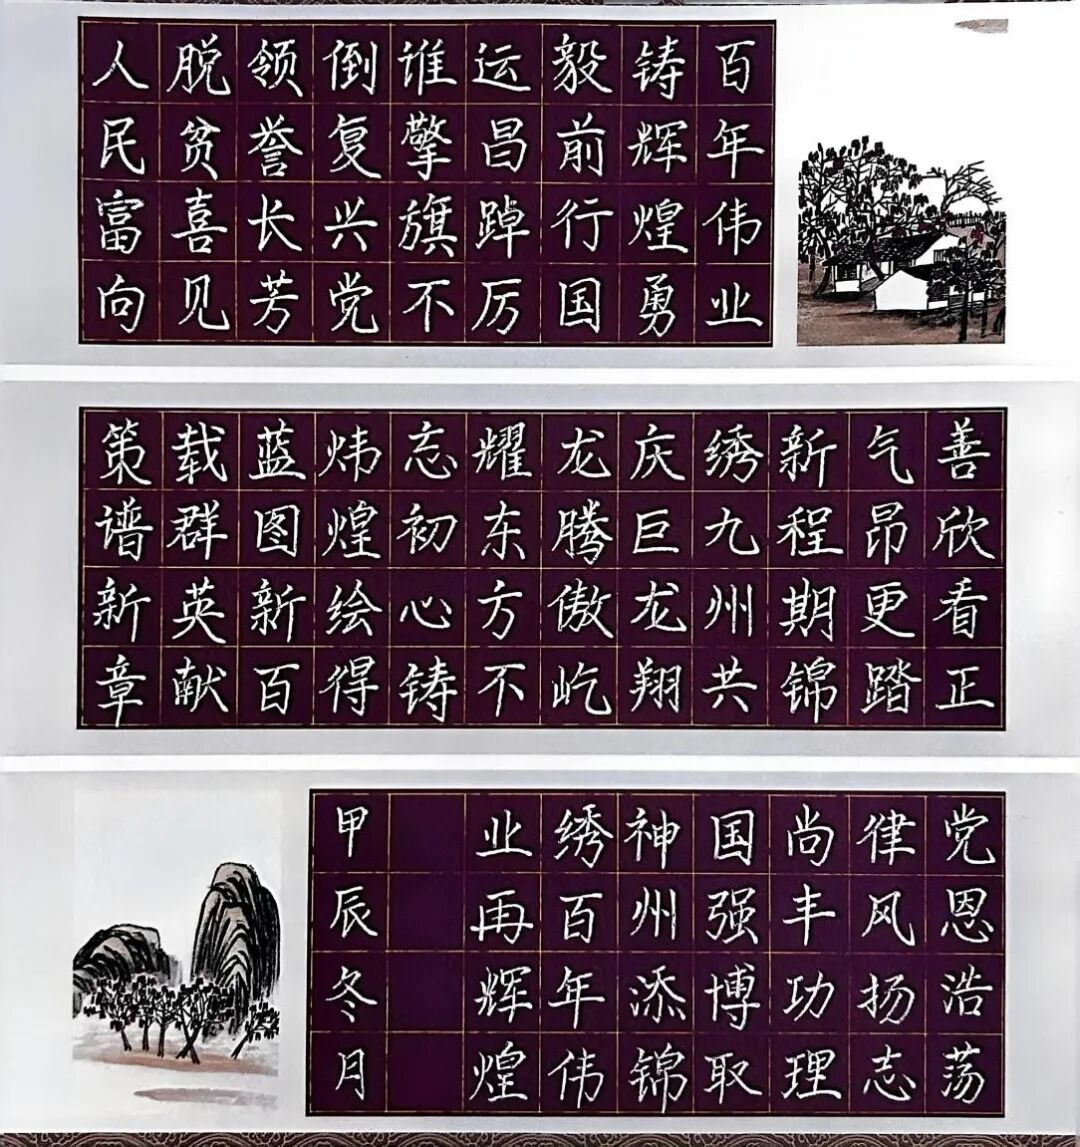 百年伟业
铸辉煌勇
毅前行国
运昌踔厉
谁擎旗不
倒复兴党
领誉长芳
脱贫喜见
人民富向
善欣看正
气昂更踏
新程期锦
绣九州共
庆巨龙翔
龙腾傲屹
耀东方不
忘初心铸
炜煌绘得
蓝图新百
载群英献
策谱新章
党恩浩荡
律风扬志
尚丰功理
国强博取
神州添锦
绣百年伟
业再辉煌
甲辰冬月